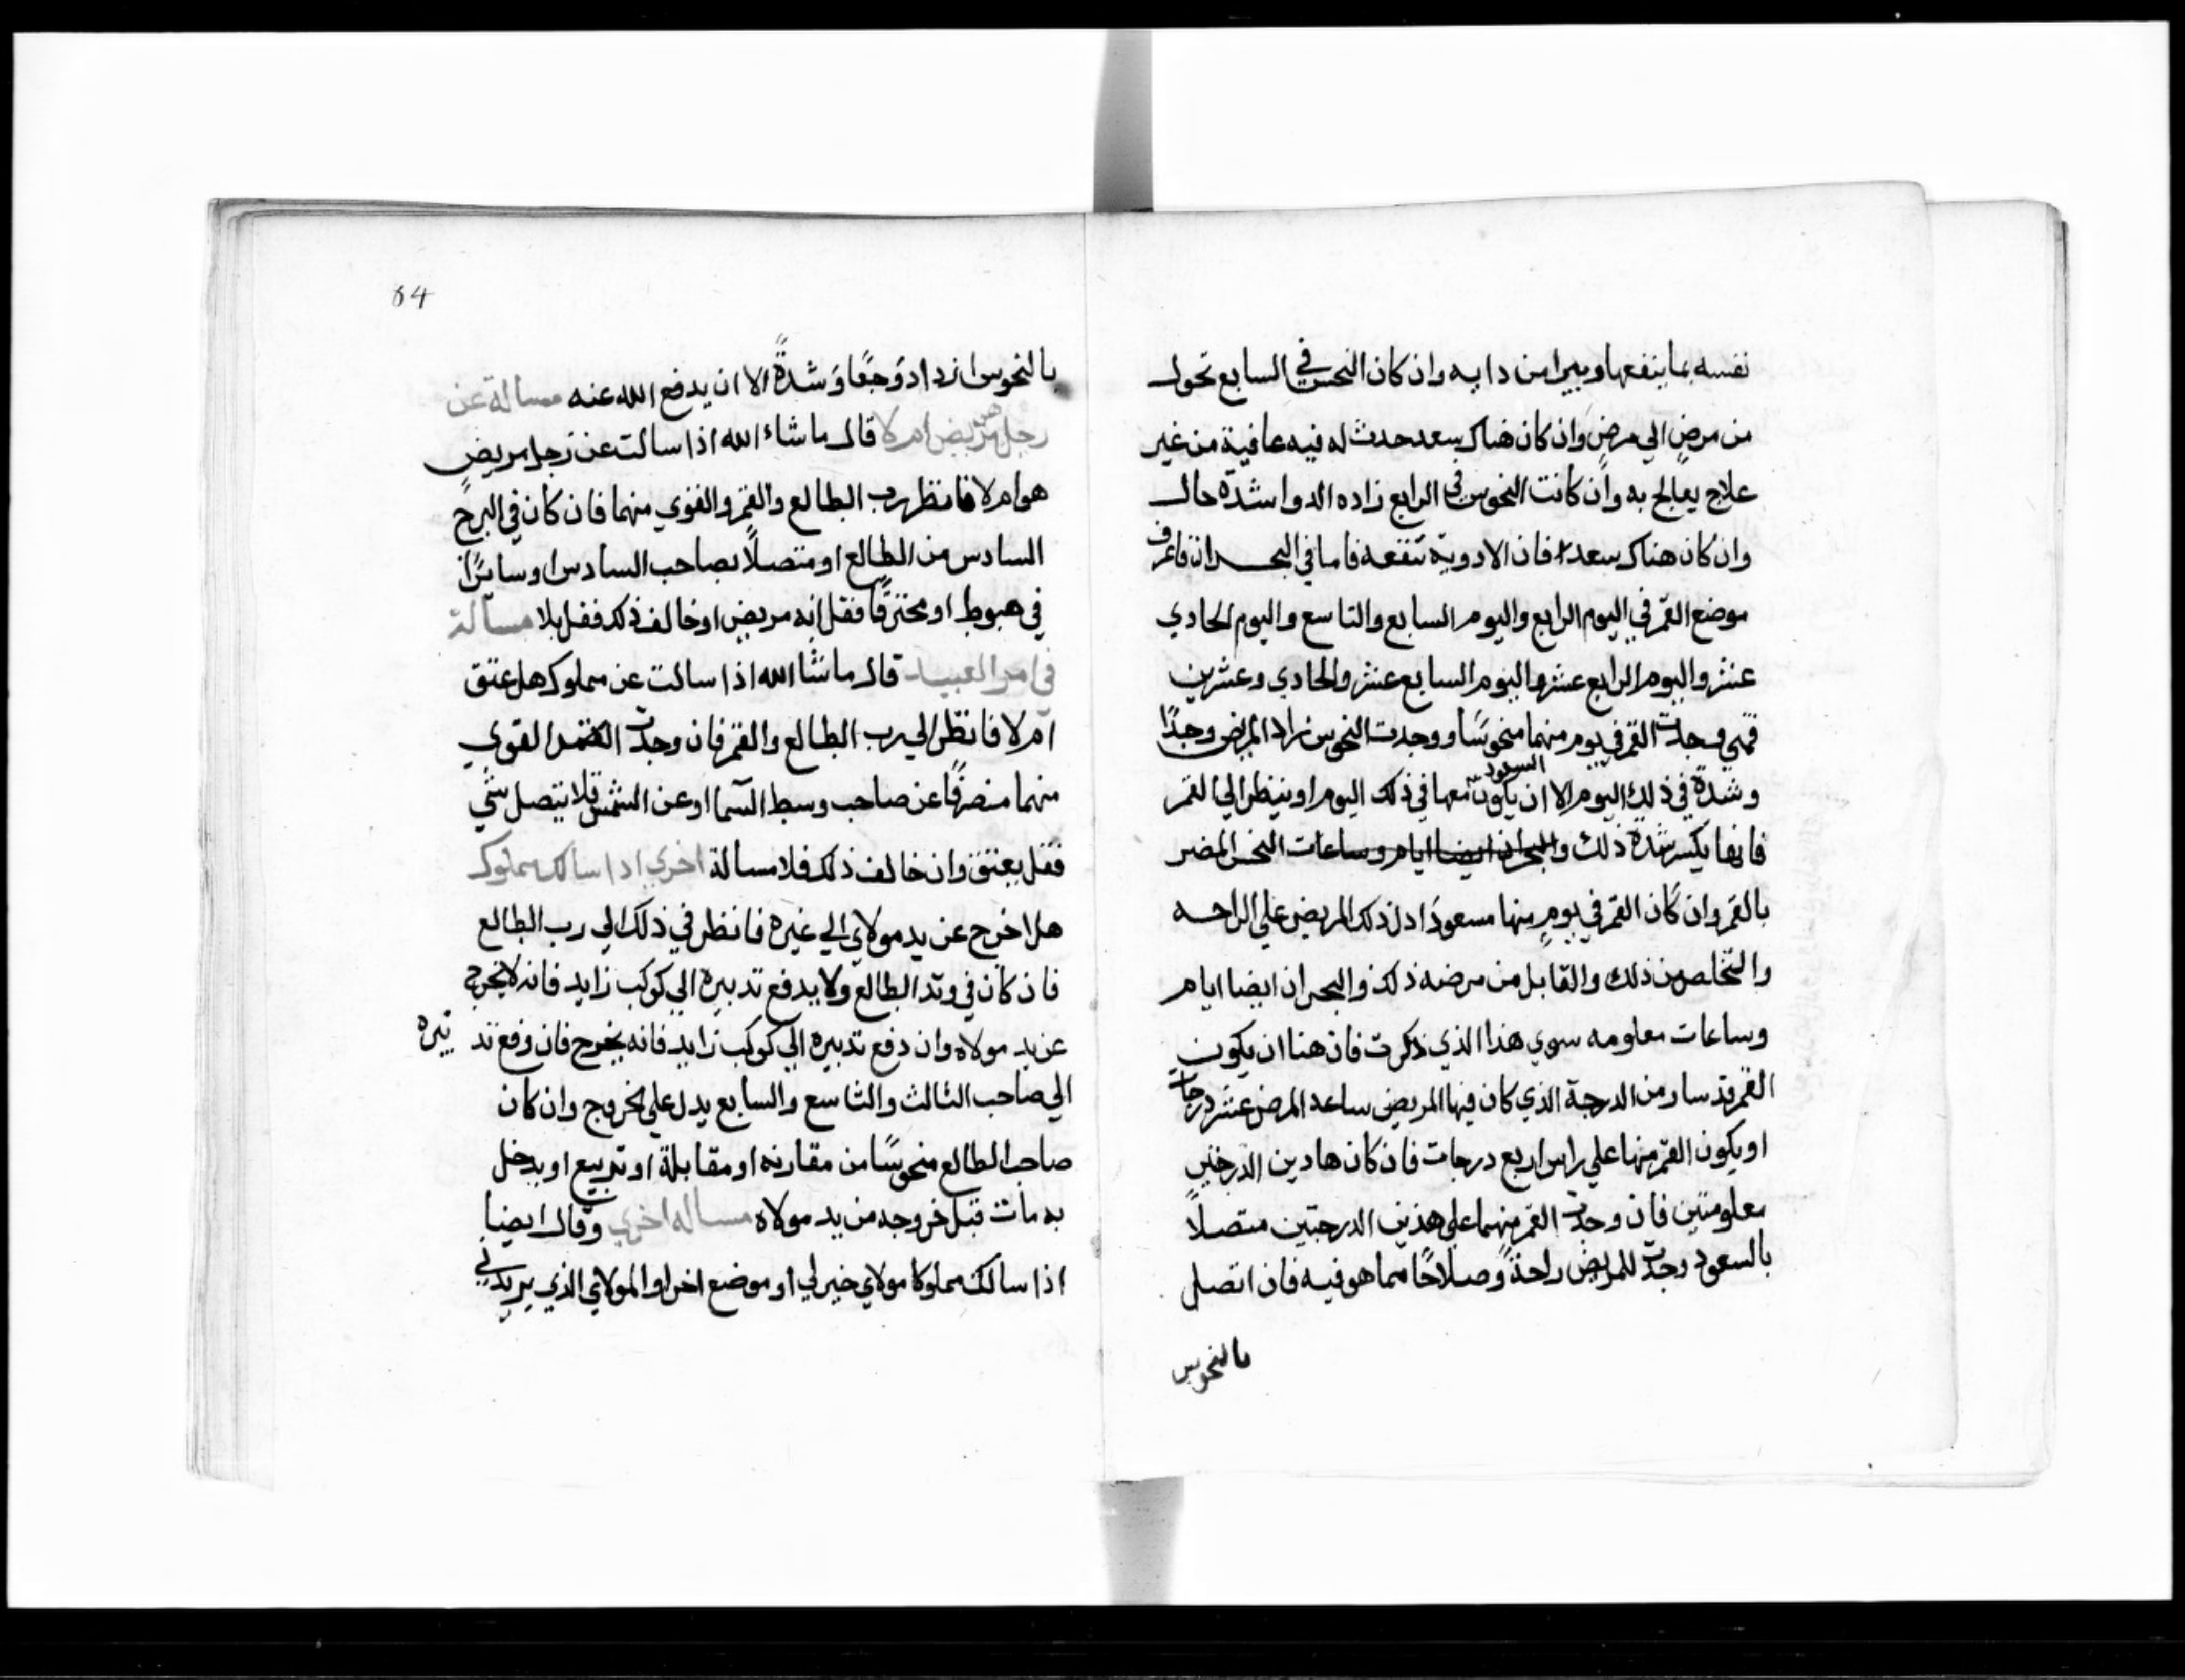 نفسه بما ينفعها ويبرا من دايه وان كان النحس في السابع تحول
من مرض الي مرض وان كان هناك سعد حدث له فيه عافية من غير
علاج يعالج به وان كانت النحوس في الرابع زاده الدوا شدة حال
وان كان هناك سعدا فان الادوية تنفعه فاما في البحران فاعرف
موضع القمر في اليوم الرابع واليوم السابع والتاسع واليوم الحادي
عشر واليوم الرابع عشر واليوم السابع عشر والحادي وعشرين
فمتي وجدت القمر في يوم منهما منحوسا ووجدت النحوس زاد المريض وجدًا
وشدة في ذلك اليوم الا ان يكون السعود معها في ذلك اليوم او ينظر الي القمر
فانها يكسر شدة ذلك والبحران ايضا ايام وساعات النحس المضر
بالقمر وان كان القمر في يومٍ منها مسعودًا دل ذلك المريض علي الراحه
والتخلص من ذلك والقابل من مرضه ذلك والبحران ايضا ايام
وساعات معلومه سوي هذا الذي ذكرت فان هنا ان يكون
القمر قد سار من الدرجة الذي كان فيها المريض ساعد المرض عشر درجات
او يكون القمر منها علي راس اربع درجات فان كان هادين الدرجتين
معلومتين فان وجدت القمر منهما علي هذين الدرجتين متصلًا
بالسعود وجدت للمريض راحةً وصلاحًا مما هو فيه فان اتصل
بالنحوس
84
بالنحوس ازداد وجعًا وشدةً الا ان يدفع الله عنه مسالة عن
رجل مريض هو ام لا قال ما شاء الله اذا سالت عن رجل مريض
هو ام لا فانظر رب الطالع والقمر والقوي منهما فان كان في البرج
السادس من الطالع او متصلًا بصاحب السادس او سايرًا
في هبوط او محترقًا فقل انه مريض او خالف ذلك فقل بلا مسالة
في امر العبيد قال ما شا الله اذا سالت عن مملوك هل عتق
ام لا فانظر الي رب الطالع والقمر فان وجدت القمر القوي
منهما منصرفًا عن صاحب وسط السما او عن الشمس فلا يتصل بشي
فقل بعتق وان خالف ذلك فلا مسالة اخري اذا سالك مملوك
هل اخرج عن يد مولاي الي غيره فانظر في ذلك الي رب الطالع
فان كان في وتد الطالع ولا يدفع تدبيره الي كوكب زايد فانه لا يخرج
عن يد مولاه وان دفع تدبيره الي كوكب زايد فانه يخرج فان دفع تدبيره
الي صاحب الثالث والتاسع والسابع يدل علي الخروج وان كان
صاحب الطالع منحوسًا من مقارنه او مقابلة او تربيع او يدخل
به مات قبل خروجه من يد مولاه مساله اخري وقال ايضا
اذا سالك مملوكا مولاي خير لي او موضع اخر او المولاي الذي يريدني